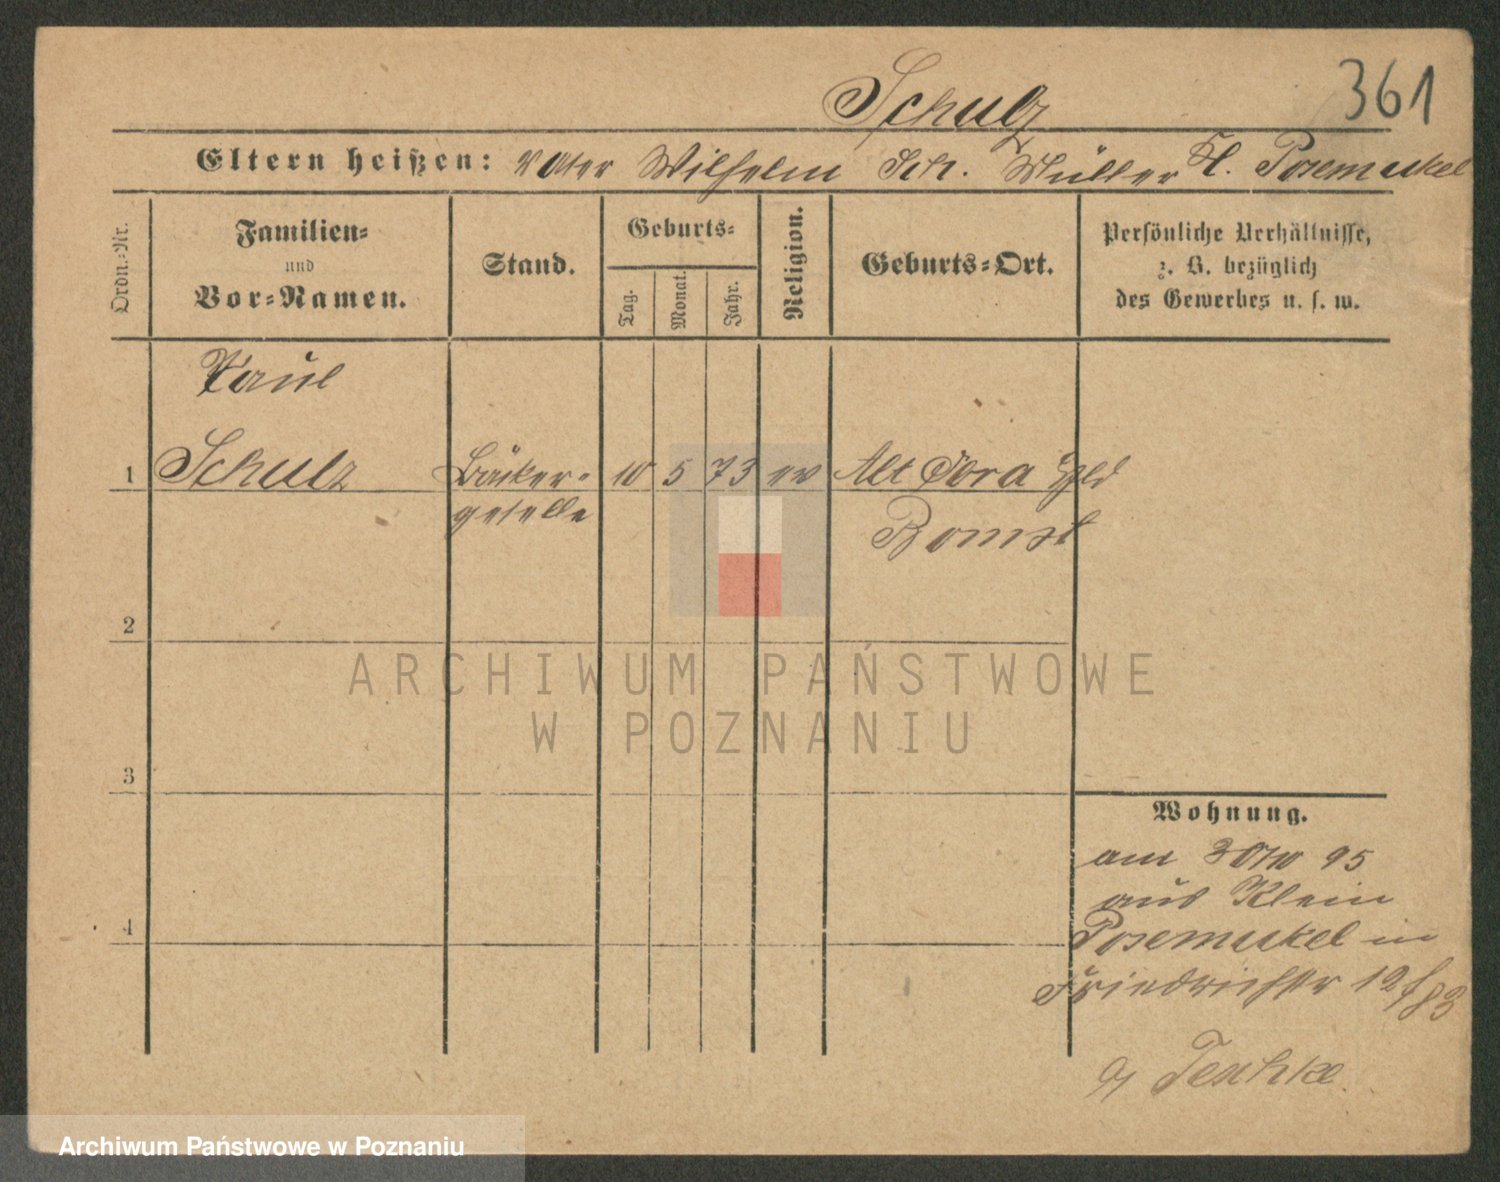 361
Schulz
Eltern heißen: Vater Wilhelm Sch. Müller Kl. Posemukel
Ordn.-Nr.
Familien-
und
Vor-Namen.
Stand.
Geburts-
Tag.
Monat.
Jahr.
Religion.
Geburts-Ort.
Persönliche Verhältnisse,
z. B. bezüglich
des Gewerbes u. s. w.
Paul
1 Schulz Bäcker- 10 5 73 ev Alt Jora
geselle Bomst
2
3
4
Wohnung.
am 95
aus Klein
Posemukel in
Friedrichstr 12
Teschke
ARCHIWUM PAŃSTWOWE
W POZNANIU
Archiwum Państwowe w Poznaniu